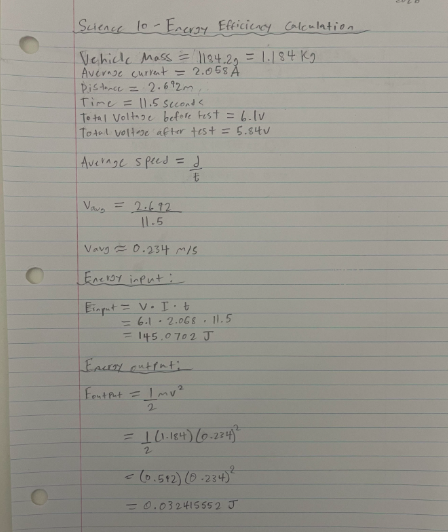 Science 10 - Energy Efficiency Calculation
Vehicle Mass = 1184.2g = 1.184 Kg
Average current = 2.058 A
Distance = 2.692m
Time = 11.5 seconds
Total Voltage before test = 6.1V
Total voltage after test = 5.84V
Average speed = d/t
Vavg = 2.692/11.5
Vavg ≈ 0.234 m/s
Energy input:
Einput = V · I · t
= 6.1 · 2.068 · 11.5
= 145.0702 J
Energy output:
Eoutput = 1/2 mv²
= 1/2 (1.184)(0.234)²
= (0.592)(0.234)²
= 0.032415552 J